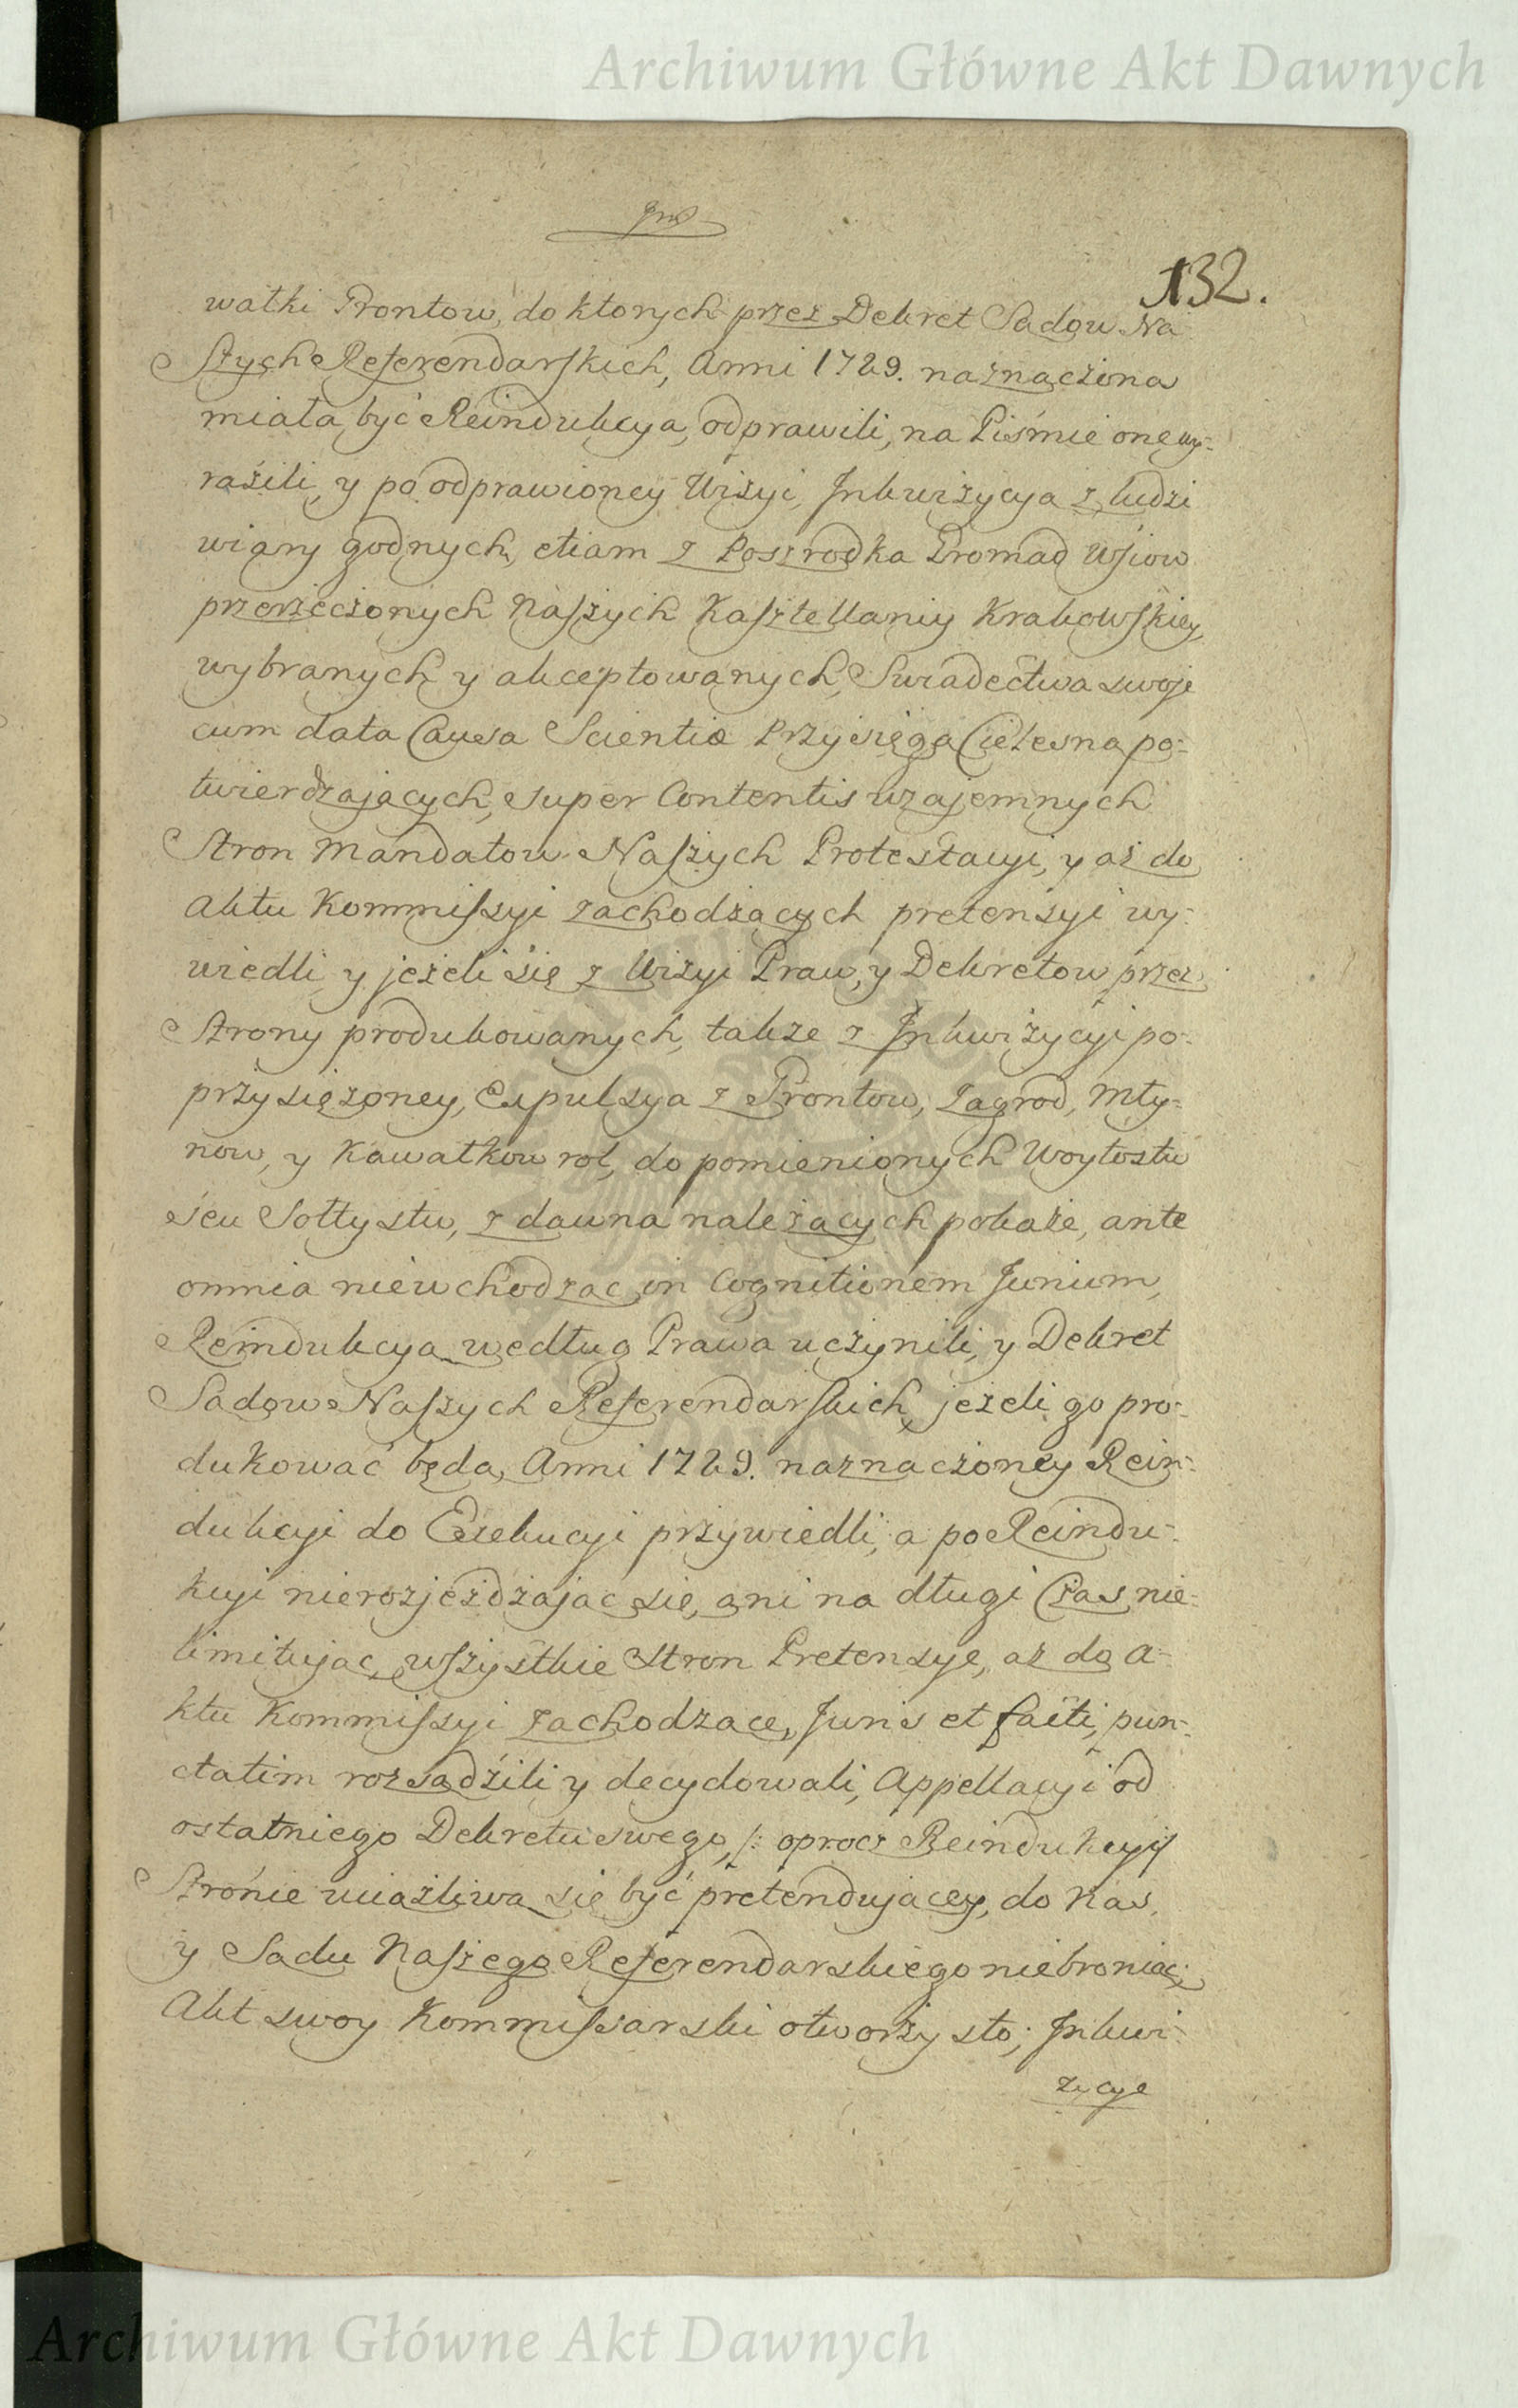 Archiwum Główne Akt Dawnych
132.
watki Grontow, do ktorych przez Dekret Sądow Na
szych Referendarskich, Anni 1729. naznaczona
miała być Reindukcya, odprawili, na Piśmie onę wy-
razili, y po odprawioney Wizyi, Inkwizycyą z ludzi
wiary godnych, etiam z Poszrodka Gromad Wsiow
przerzeczonych Naszych Kasztellaniy Krakowskiey,
wybranych y akceptowanych, Swiadectwa swoje
cum data Causa Scientiæ Przysięgą Cielesną po-
twierdzających, super Contentis wzajemnych
Stron Mandatow Naszych Protestacyi, y aż do
Aktu Kommissyi zachodzących pretensyi wy-
wiedli, y jeżeli się z Wizyi Praw, y Dekretow przez
Strony produkowanych, także z Inkwizycyi po-
przysiężoney, Expulsya z Grontow, Zagrod, Mły-
now, y Kawałkow rol, do pomienionych Woytostw
seu Sołtystw, z dawna należących pokaże, ante
omnia niewchodząc in Cognitionem Jurium,
Reindukcyą według Prawa uczynili, y Dekret
Sądow Naszych Referendarskich, jeżeli go pro-
dukować będą, Anni 1729. naznaczoney Rein-
dukcyi do Exekucyi przywiedli, a po Reindu-
kcyi nierozjeżdzając się, ani na długi Czas nie-
limitując, wszystkie Stron Pretensye, aż do A-
ktu Kommissyi zachodzące, Juris et facti, pun-
ctatim rozsądzili y decydowali, Appellacyi od
ostatniego Dekretu swego, /: oprocz Reindukcyi/
Stronie uciążliwą się być pretendującey, do Nas,
y Sądu Naszego Referendarskiego niebroniąc;
Akt swoy Kommissarski otworzysto; Inkwi-
zycye
Archiwum Główne Akt Dawnych